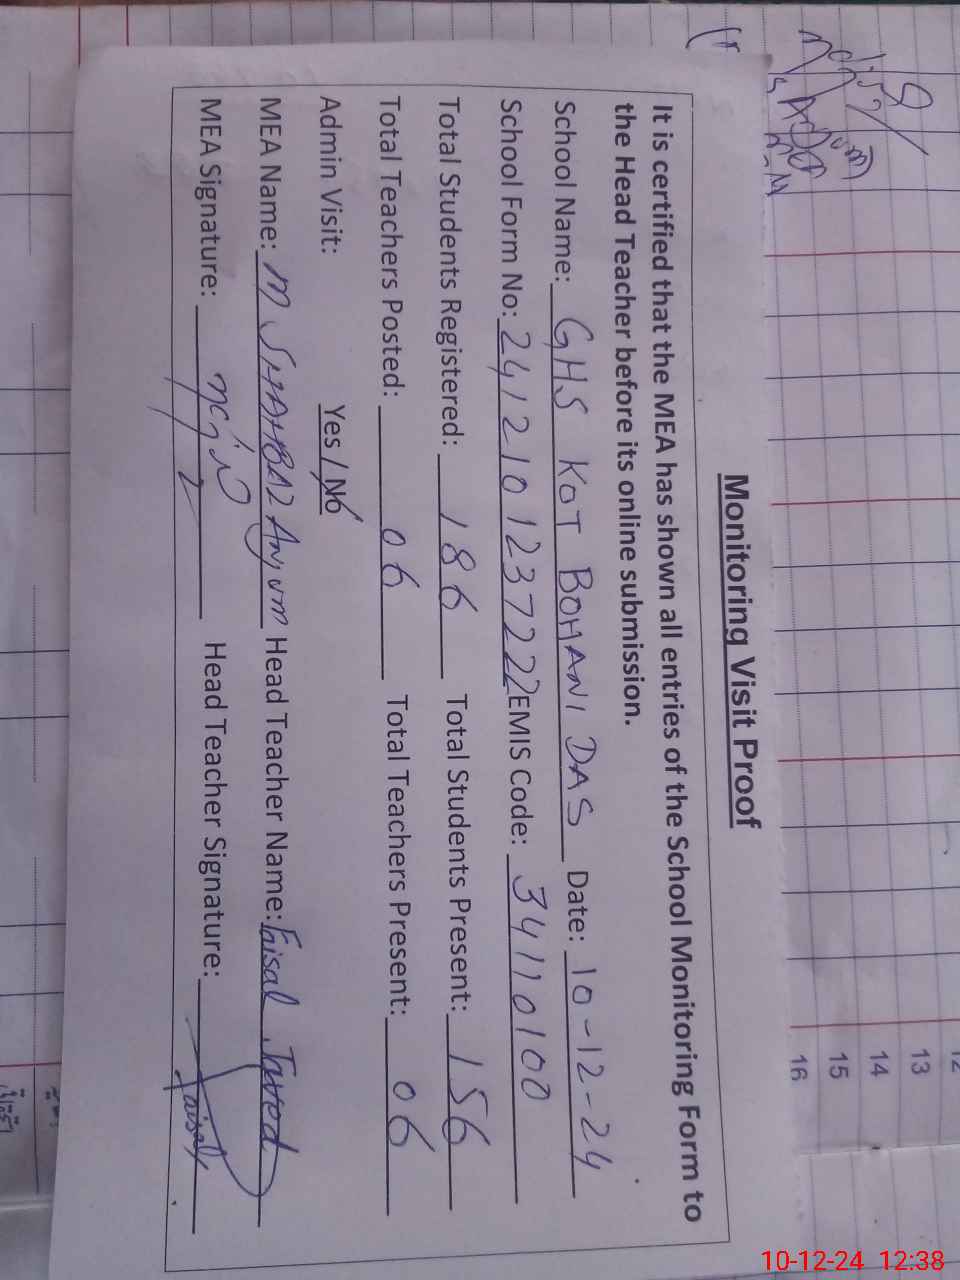 Monitoring Visit Proof
It is certified that the MEA has shown all entries of the School Monitoring Form to
the Head Teacher before its online submission.
School Name: GHS KOT BOHANI DAS Date: 10-12-24
School Form No: 2412101237222 EMIS Code: 34110100
Total Students Registered: 186 Total Students Present: 156
Total Teachers Posted: 06 Total Teachers Present: 06
Admin Visit: Yes / No
MEA Name: M SHAHBAZ Anjum Head Teacher Name: Faisal Javed
MEA Signature: Head Teacher Signature: Faisal
12
13
14
15
16
10-12-24 12:38